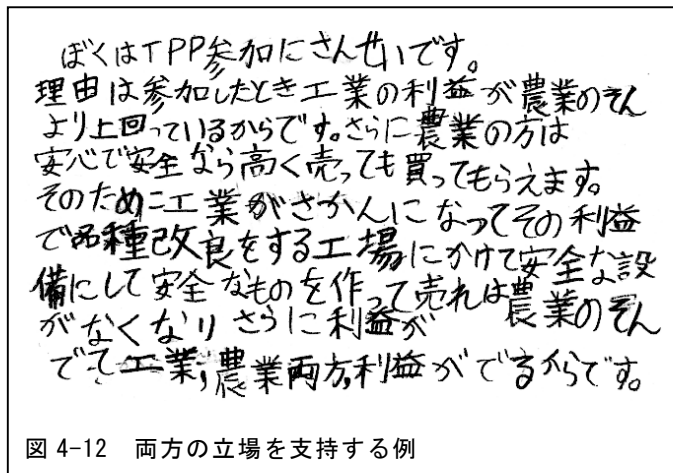 ぼくはTPP参加にさんせいです。
理由は参加したとき工業の利益が農業のそん
より上回っているからです。さらに農業の方は
安心で安全なら高く売っても買ってもらえます。
そのために工業がさかんになってその利益
で品種改良をする工場にかけて安全な設
備にして安全なものを作って売れは農業のそん
がなくなりさらに利益が
でて工業,農業両方,利益がでるからです。
図 4-12 両方の立場を支持する例